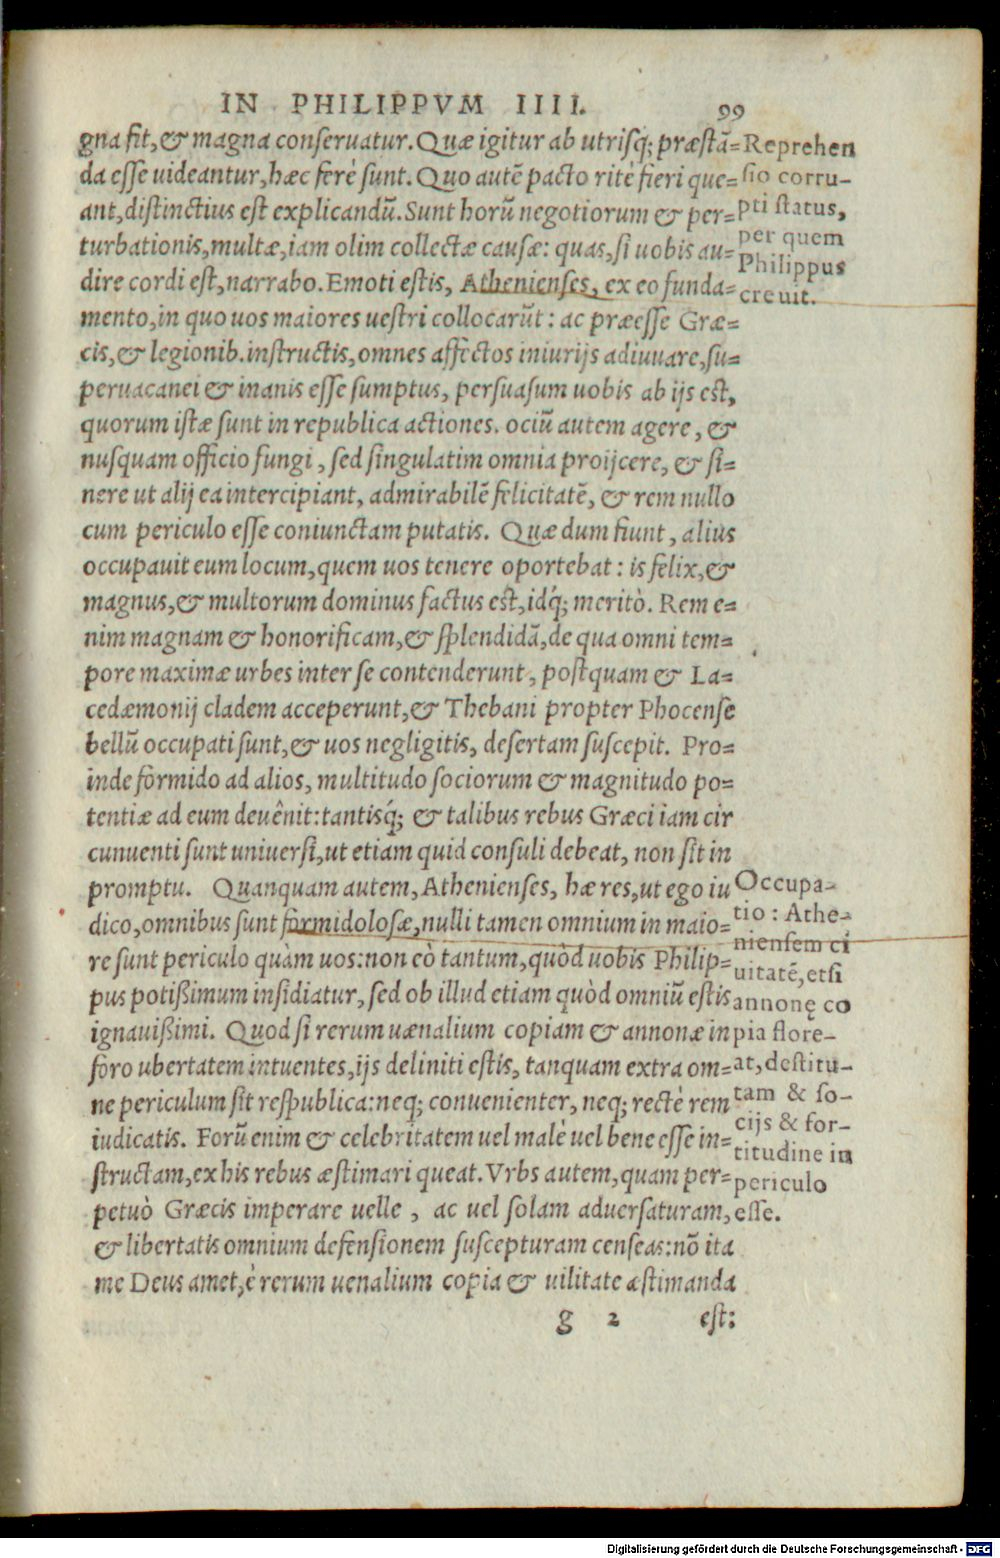 IN PHILIPPVM IIII. 99
gna fit,& magna conseruatur. Quæ igitur ab utrisq; præstā=
da esse uideantur, hæc ferè sunt. Quo autē pacto ritè fieri que=
ant, distinctius est explicandū. Sunt horū negotiorum & per=
turbationis, multæ, iam olim collectæ causæ: quas, si uobis au=
dire cordi est, narrabo. Emoti estis, Athenienses, ex eo funda=
mento, in quo uos maiores uestri collocarūt: ac præesse Græ=
cis, & legionib. instructis, omnes affectos iniurijs adiuuare, su=
peruacanei & inanis esse sumptus, persuasum uobis ab ijs est,
quorum istæ sunt in republica actiones. ociū autem agere, &
nusquam officio fungi, sed singulatim omnia proijcere, & si=
nere ut alij ea intercipiant, admirabilē felicitatē, & rem nullo
cum periculo esse coniunctam putatis. Quæ dum fiunt, alius
occupauit eum locum, quem uos tenere oportebat: is felix, &
magnus, & multorum dominus factus est, idq́; meritò. Rem e=
nim magnam & honorificam, & splendidā, de qua omni tem=
pore maximæ urbes inter se contenderunt, postquam & La=
cedæmonij cladem acceperunt, & Thebani propter Phocense
bellū occupati sunt, & uos negligitis, desertam suscepit. Pro=
inde formido ad alios, multitudo sociorum & magnitudo po=
tentiæ ad eum deuênit: tantisq́; & talibus rebus Græci iam cir
cunuenti sunt uniuersi, ut etiam quid consuli debeat, non sit in
promptu. Quanquam autem, Athenienses, hæ res, ut ego iu
dico, omnibus sunt formidolosæ, nulli tamen omnium in maio=
re sunt periculo quàm uos: non eò tantum, quòd uobis Philip=
pus potißimum insidiatur, sed ob illud etiam quòd omniū estis
ignauißimi. Quod si rerum uænalium copiam & annonæ in
foro ubertatem intuentes, ijs deliniti estis, tanquam extra om=
ne periculum sit respublica: neq; conuenienter, neq; rectè rem
iudicatis. Forū enim & celebritatem uel malè uel bene esse in=
structam, ex his rebus æstimari queat. Vrbs autem, quam per=
petuò Græcis imperare uelle, ac uel solam aduersaturam,
& libertatis omnium defensionem suscepturam censeas: nō ita
me Deus amet, è rerum uenalium copia & uilitate æstimanda
g 2 est:
Reprehen
sio corru-
pti status,
per quem
Philippus
creuit.
Occupa-
tio: Athe-
niensem ci
uitatē, etsi
annonę co
pia flore-
at, destitu-
tam & so-
cijs & for-
titudine in
periculo
esse.
Digitalisierung gefördert durch die Deutsche Forschungsgemeinschaft - DFG